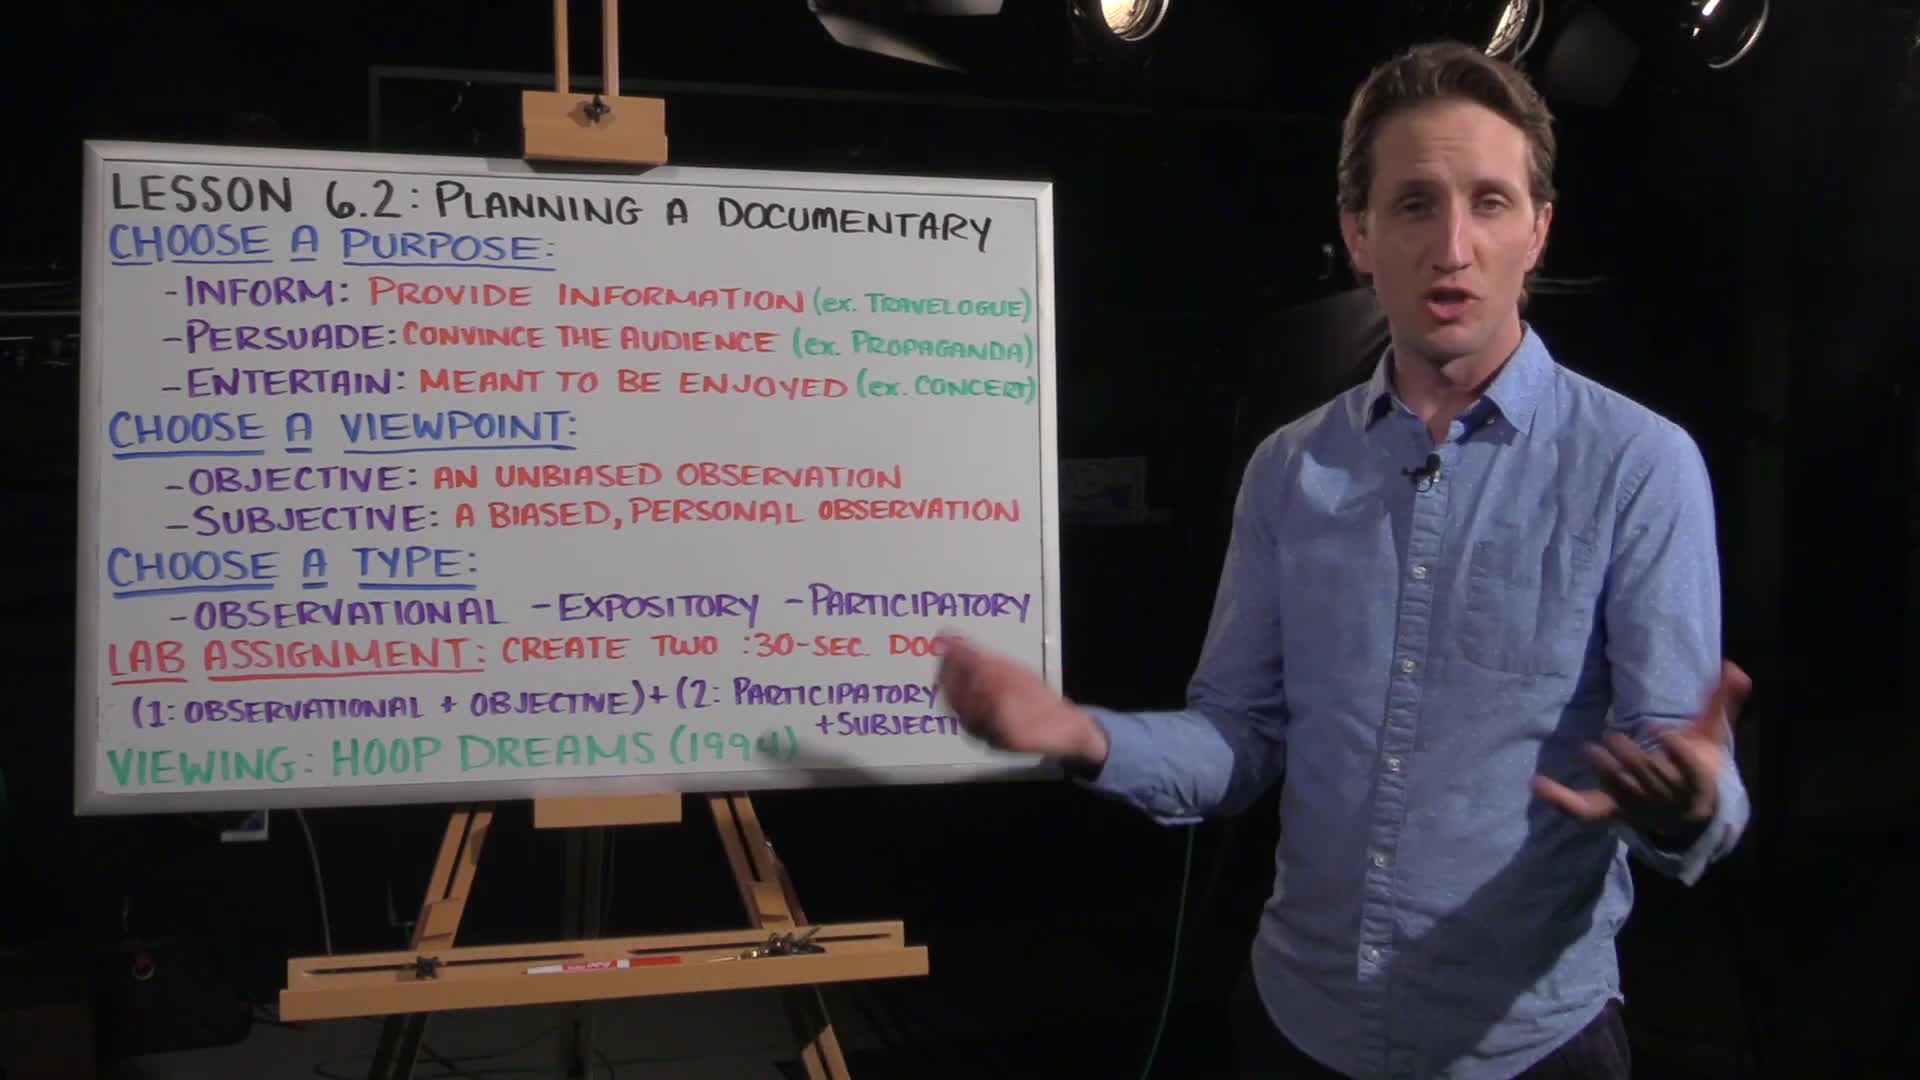 LESSON 6.2: PLANNING A DOCUMENTARY
CHOOSE A PURPOSE:
-INFORM: PROVIDE INFORMATION (ex. TRAVELOGUE)
-PERSUADE: CONVINCE THE AUDIENCE (ex. PROPAGANDA)
-ENTERTAIN: MEANT TO BE ENJOYED (ex. CONCERT)
CHOOSE A VIEWPOINT:
-OBJECTIVE: AN UNBIASED OBSERVATION
-SUBJECTIVE: A BIASED, PERSONAL OBSERVATION
CHOOSE A TYPE:
-OBSERVATIONAL -EXPOSITORY -PARTICIPATORY
LAB ASSIGNMENT: CREATE TWO :30-SEC. DOC
(1: OBSERVATIONAL + OBJECTIVE) + (2: PARTICIPATORY
+SUBJECTI
VIEWING: HOOP DREAMS (1994)